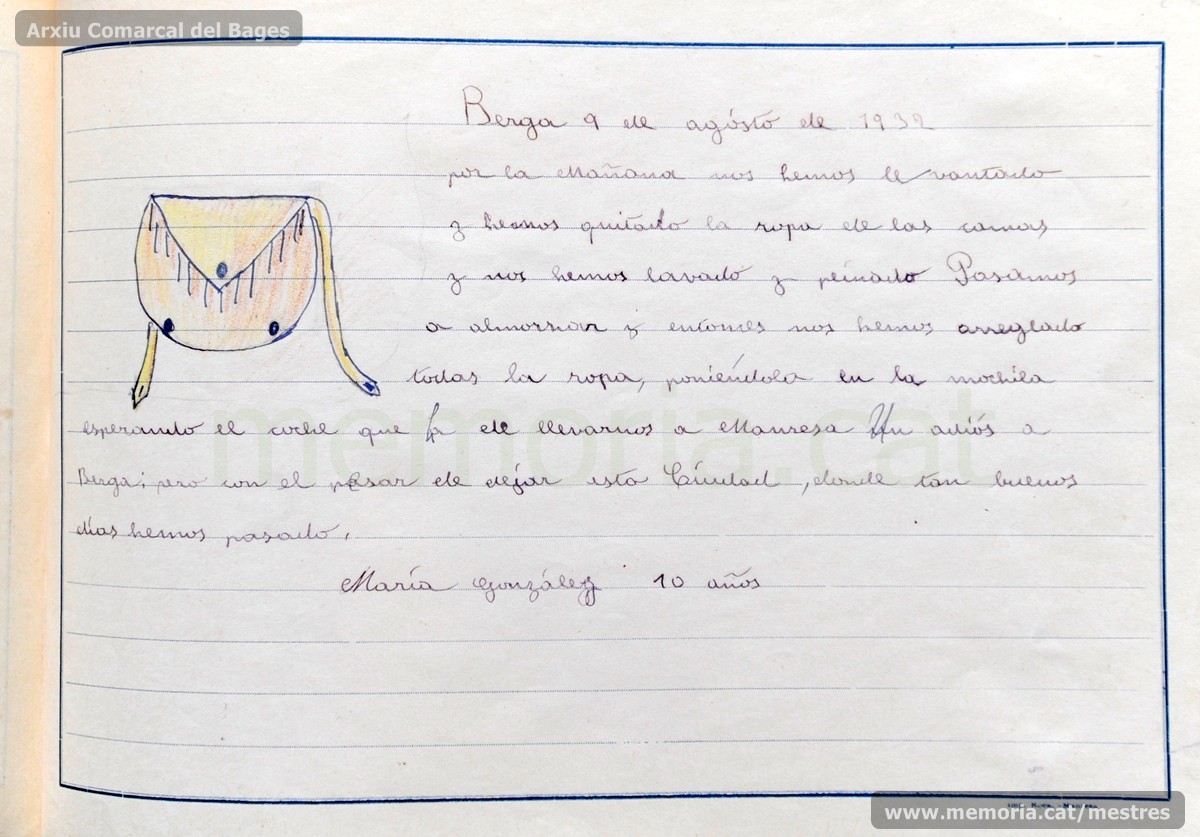 Arxiu Comarcal del Bages
Berga 9 de agósto de 1932
por la Mañana nos hemos le vantado
y hemos quitado la ropa de las camas
y nos hemos lavado y peinado Pasamos
a almorzar y entonces nos hemos arreglado
todas la ropa, poniéndola en la mochila
esperando el coche que ha de llevarnos a Manresa Un adiós a
Berga; pero con el pesar de dejar esta Ciudad, donde tan buenos
días hemos pasado.
María González 10 años
memoria.cat
www.memoria.cat/mestres